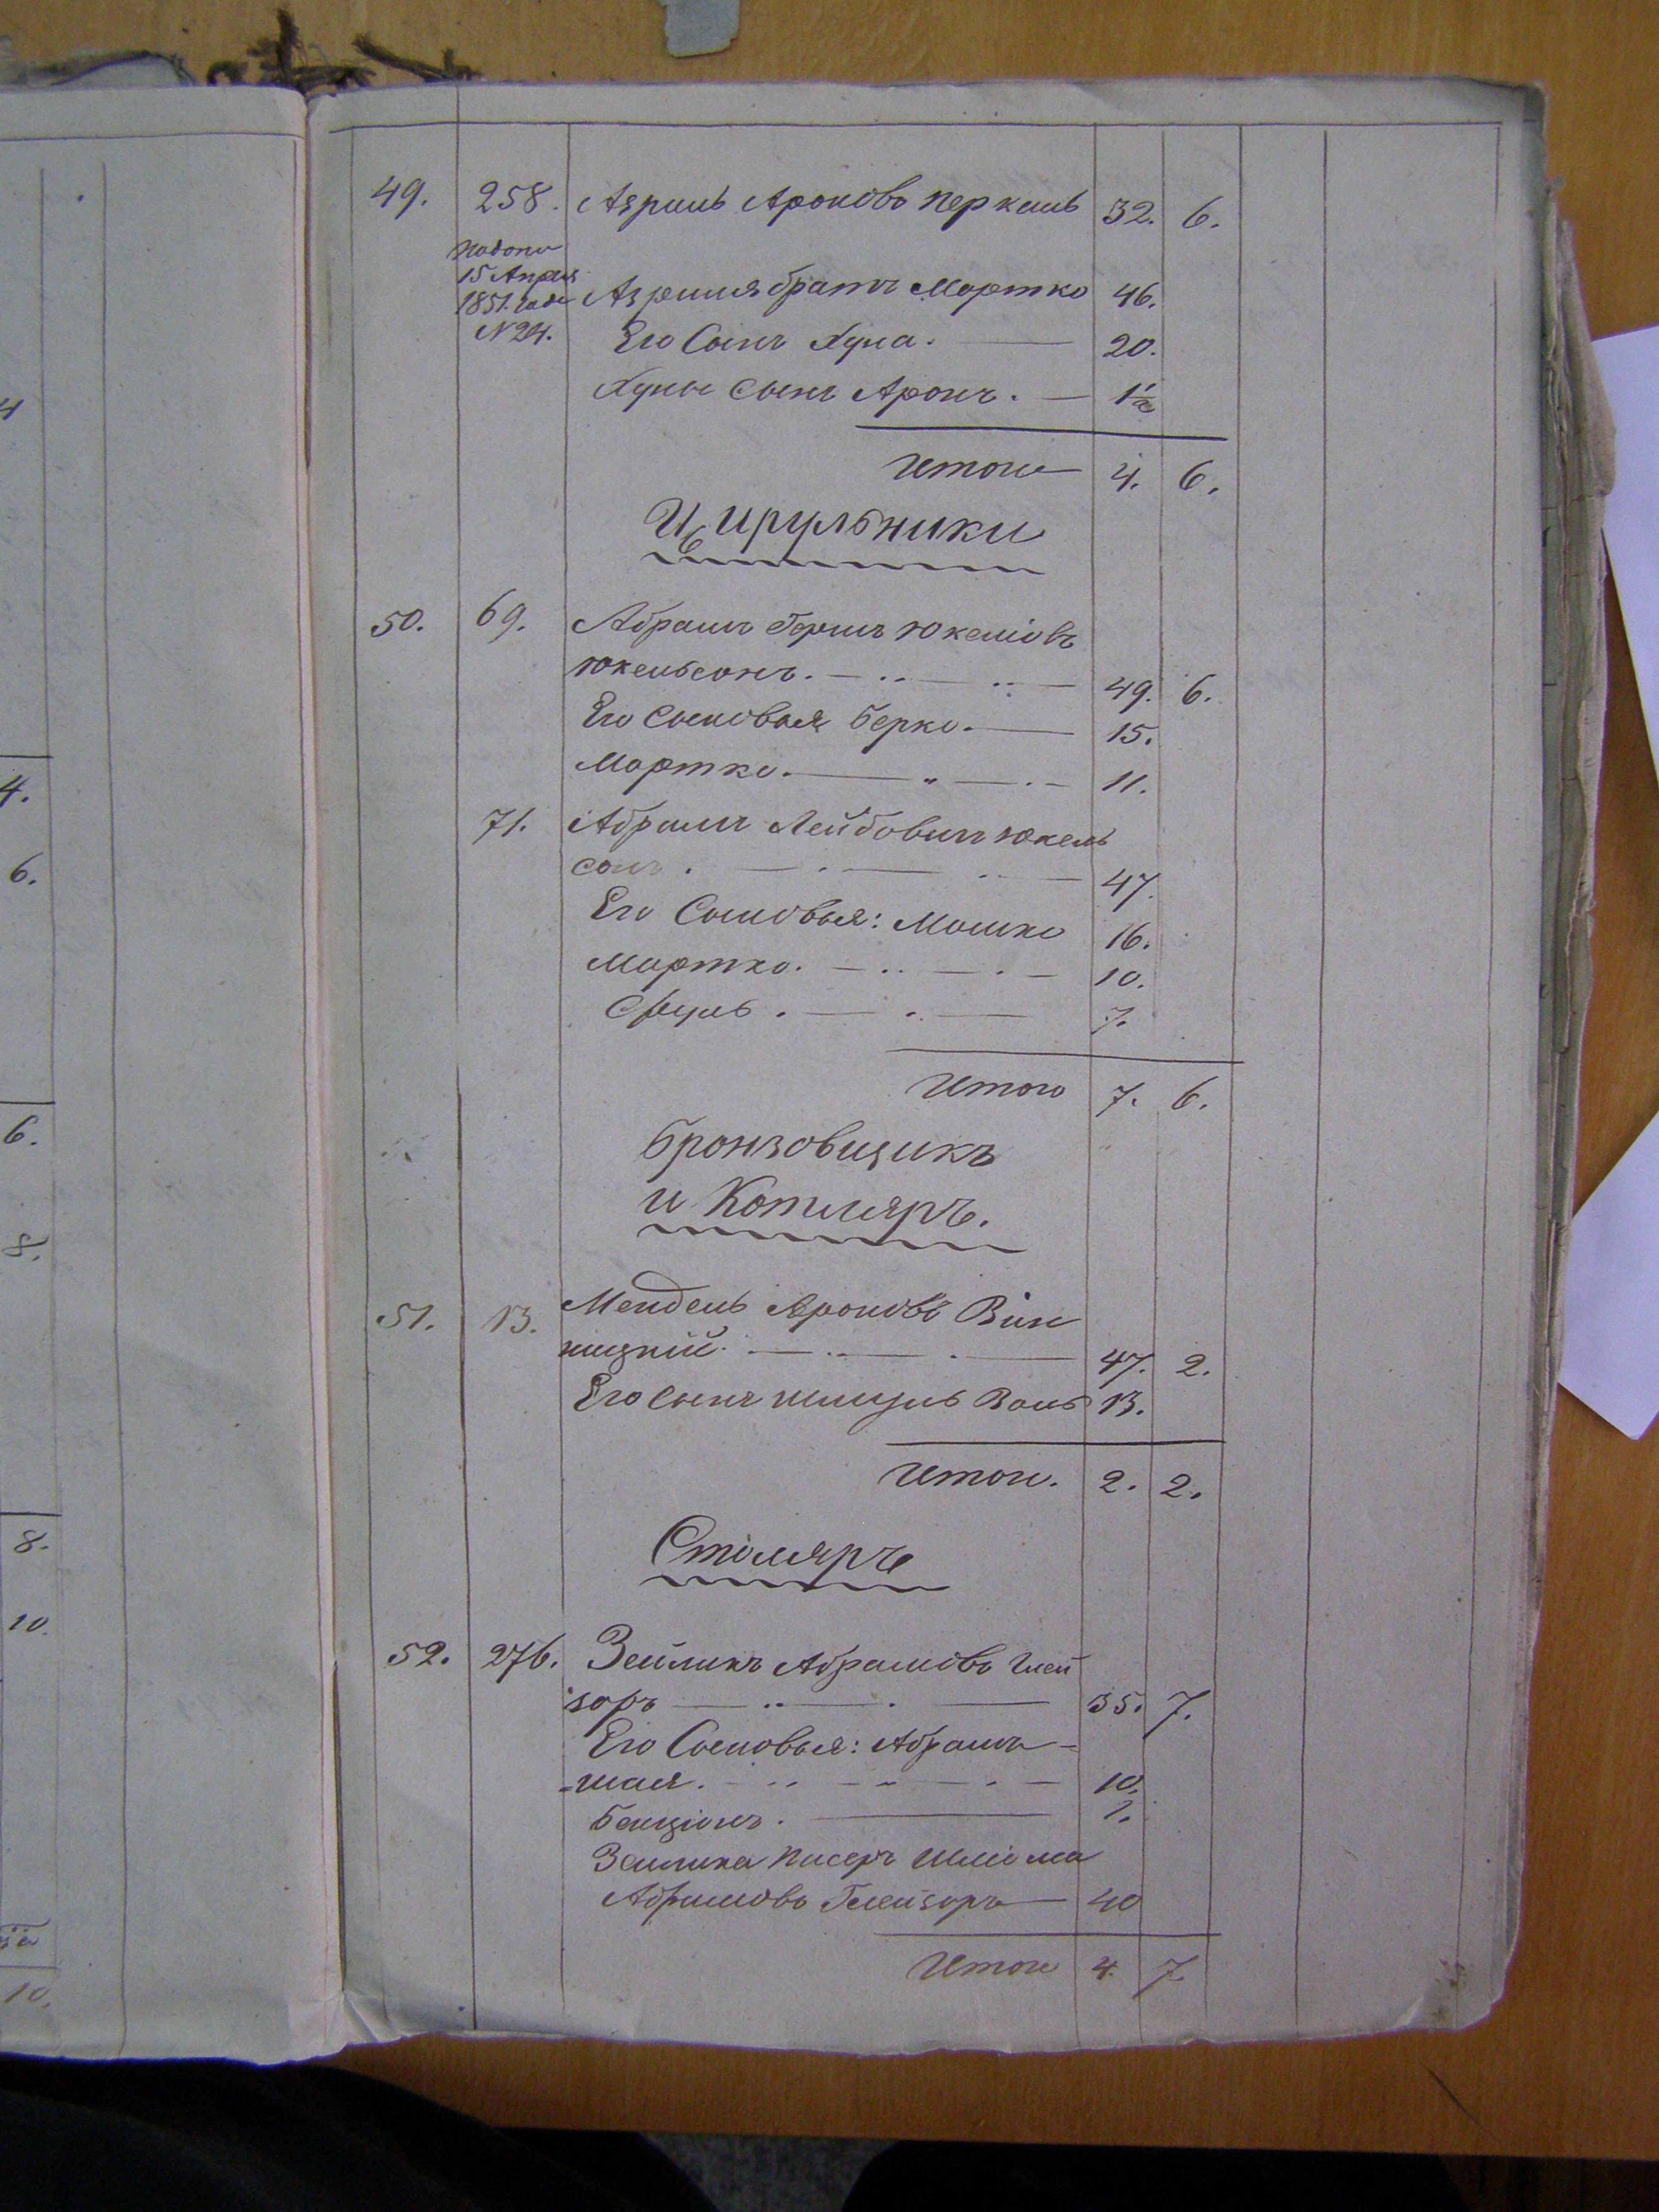 49. 258. Азриль Ароновъ Перкаль 32. 6.
15 Апреля
1851. года
N 24.
Азриля братъ Мортко 46.
Его Сынъ Хуна. 20.
Хуны Сынъ Аронъ. 1½
Итого 4. 6.
Цирульники
50. 69. Абрамъ Гершъ Юкеліовъ
Юкельсонъ. 49. 6.
Его Сыновья Берко. 15.
Мортко. 11.
71. Абрамъ Лейбовичъ Юкель
сонъ. 47.
Его Сыновья: Мошко 16.
Мортко. 10.
Сруль. 7.
Итого 7. 6.
Бронзовщикъ
и Котляръ.
51. 13. Мендель Ароновъ Вин
ницкій. 47. 2.
Его Сынъ Шмуль 13.
Итого. 2. 2.
Столяръ
52. 276. Зейликъ Абрамовъ Глей
зоръ 35. 7.
Его Сыновья: Абрамъ-
-шая. 10.
Бенціонъ.
Зейлика Шліома
Абрамовъ Глейзоръ 40
Итого 4. 7
4
4.
6.
6.
8.
8.
10.
10.